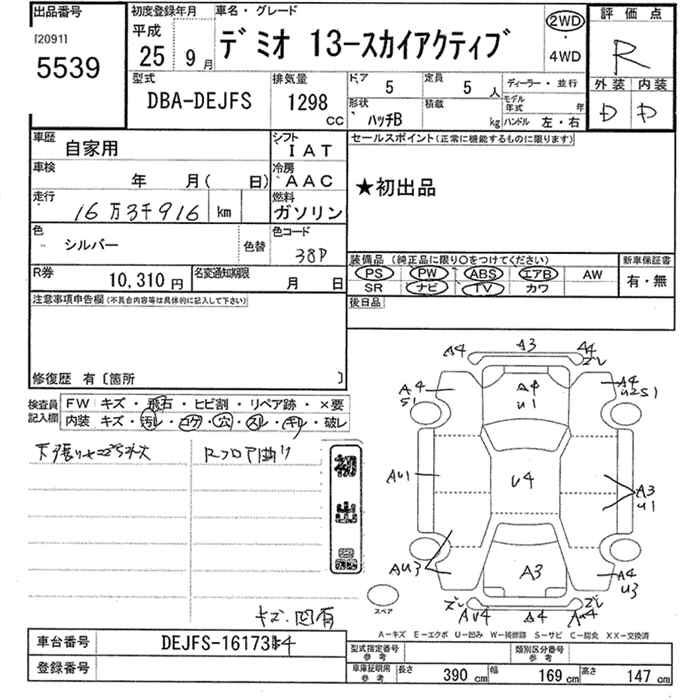 出品番号
[2091]
5539
初度登録年月
平成
25 9月
車名・グレード
デミオ 13-スカイアクティブ
2WD
・
4WD
評価点
R
外装 内装
D D
型式
DBA-DEJFS
排気量
1298
CC
ドア
5
定員
5 人
形状
ハッチB
積載
kg
ディーラー・並行
モデル年式 年
ハンドル 左・右
車歴
自家用
シフト
IAT
車検
年 月( 日)
冷房
AAC
走行
16万3千916 km
燃料
ガソリン
色
シルバー
色替
色コード
38P
R券
10,310円
名変通知期限
月 日
セールスポイント(正常に機能するものに限ります)
★初出品
装備品(純正品に限り○をつけてください)
PS PW ABS エアB AW
SR ナビ TV カワ
新車保証書
有・無
後日品
注意事項申告欄(不具合内容等は具体的に記入して下さい)
修復歴 有〔箇所 〕
検査員
記入欄
FW キズ・飛石・ヒビ割・リペア跡・×要
内装 キズ・汚レ・コゲ・穴・スレ・キレ・破レ
Rフロア曲り
キズ・凹有
スペア
A4 A3 A4
ズレ
A4
S1
A4
U1
A4
U2S1
AU1
U4
A3
U1
AU3
A3
A4
U3
ズレ
AU4
A4
ズレ
A-キズ E-エクボ U-凹み W-補修跡 S-サビ C-腐食 XX-交換済
車台番号
DEJFS-161734
登録番号
型式指定番号
参考
類別区分番号
参考
車庫証明用
参考
長さ 390 cm 幅 169 cm 高さ 147 cm